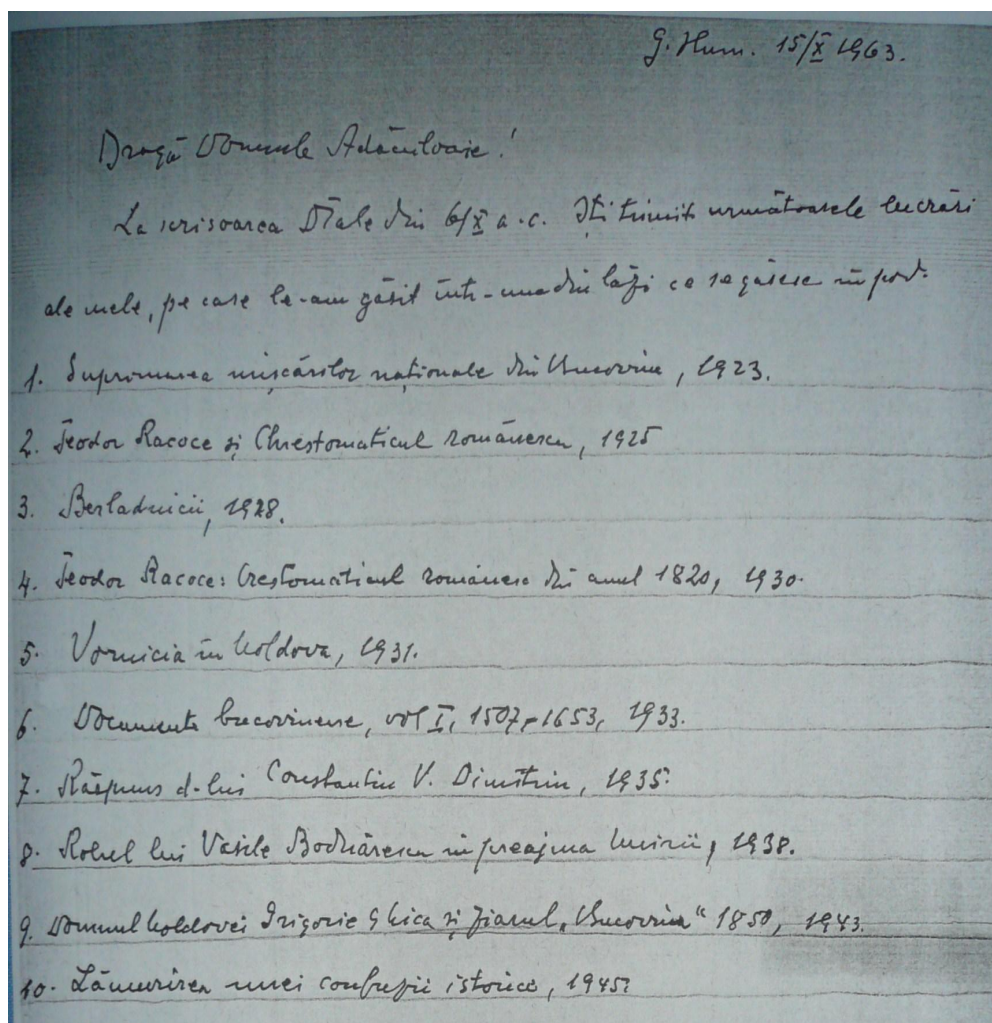 G. Hum. 15/X 1963.
Dragă Domnule Adăculoaie!
La scrisoarea Dtale din 6/X a.c. Iți trimit următoarele lucrări
ale mele, pe care le-am găsit într-una din lăzi ce se găsesc în pod:
1. Suprimarea mișcărilor naționale din Bucovina, 1923.
2. Teodor Racoce și Chrestomaticul românescu, 1925
3. Berladnicii, 1928.
4. Teodor Racoce: Crestomaticul românesc din anul 1820, 1930.
5. Vornicia în Moldova, 1931.
6. Documente bucovinene, vol I, 1507-1653, 1933.
7. Răspuns d-lui Constantin V. Dimitriu, 1935.
8. Rolul lui Vasile Bodnărescu în preajma Unirii, 1938.
9. Domnul Moldovei Grigorie Ghica și ziarul „Bucovina“ 1850, 1943.
10. Lămurirea unei confuzii istorice, 1945.